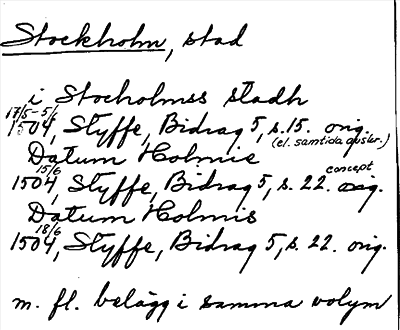 Stockholm, stad
i Stocholmss stadh
17/5-5/6
1504, Styffe, Bidrag 5, s. 15. orig.
(el. samtida avskr.)
Datum Holmis
15/6 concept
1504, Styffe, Bidrag 5, s. 22. orig.
Datum Holmis
18/6
1504, Styffe, Bidrag 5, s. 22. orig.
m. fl. belägg i samma volym